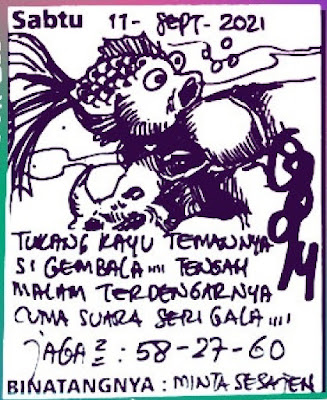 Sabtu 11 - SEPT - 2021
TUKANG KAYU TEMANNYA
SI GEMBALA.... TENGAH
MALAM TERDENGARNYA
CUMA SUARA SERIGALA....
JAGA2 : 58-27-60
BINATANGNYA : MINTA SESAJEN